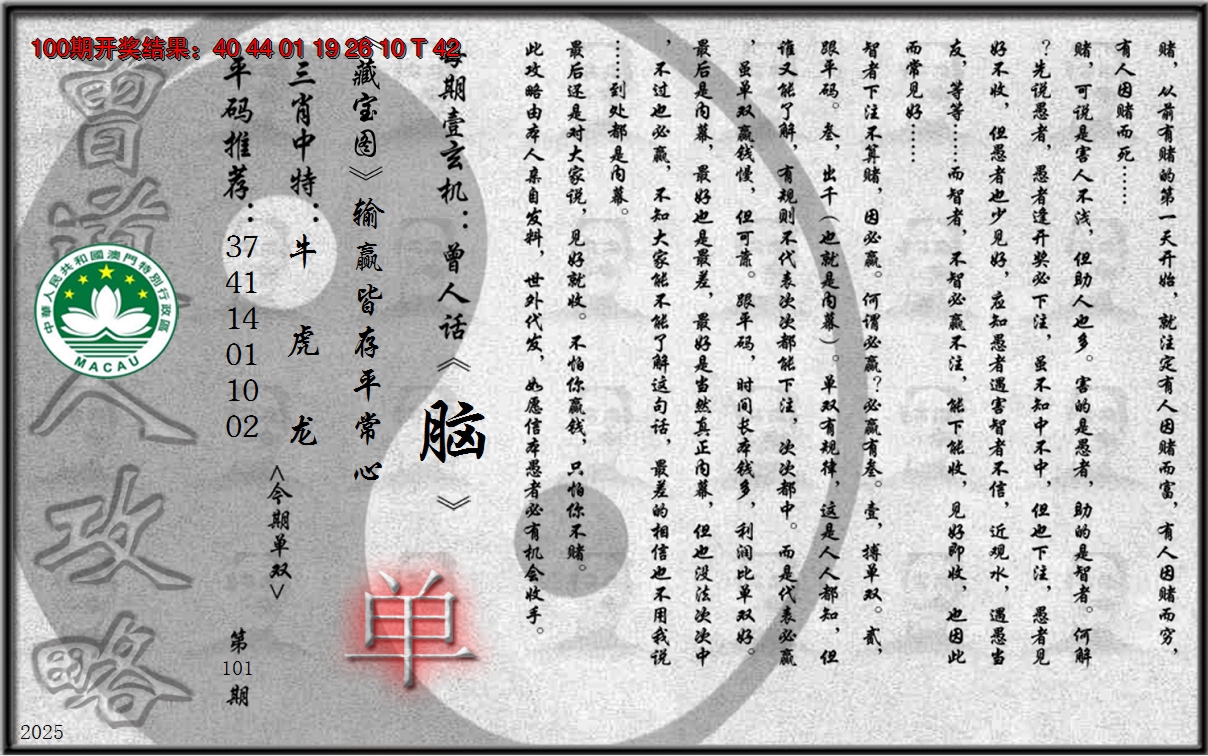 100期开奖结果：40 44 01 19 26 10 T 42
赌，从前有赌的第一天开始，就注定有人因赌而富，有人因赌而穷，
有人因赌而死……
赌，可说是害人不浅，但助人也多。害的是愚者，助的是智者。何解
？先说愚者，愚者逢开奖必下注，虽不知中不中，但也下注，愚者见
好不收，但愚者也少见好，应知愚者遇害智者不信，近观水，遇愚当
友，等等……而智者，不智必赢不注，能下能收，见好即收，也因此
而常见好……
智者下注不算赌，因必赢。何谓必赢？必赢有叁。壹，搏单双。贰，
跟平码。叁，出千（也就是内幕）。单双有规律，这是人人都知，但
谁又能了解，有规则不代表次次都能下注，次次都中。而是代表必赢
，虽单双赢钱慢，但可靠。跟平码，时间长本钱多，利润比单双好。
最后是内幕，最好也是最差，最好是当然真正内幕，但也没法次次中
，不过也必赢，不知大家能不能了解这句话，最差的相信也不用我说
……到处都是内幕。
最后还是对大家说，见好就收。不怕你赢钱，只怕你不赌。
此攻略由本人亲自发料，世外代发，如愿信本愚者必有机会收手。
每期壹玄机：曾人话《脑》
《藏宝图》输赢皆存平常心
单
三肖中特：牛 虎 龙
<今期单双>
平码推荐：37 41 14 01 10 02
第101期
曾道人攻略
中華人民共和國澳門特別行政區
MACAU
2025